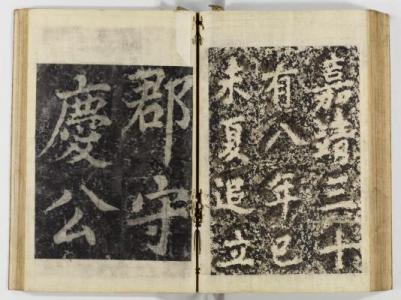 嘉靖三十
有八年己
未夏追立
郡守
慶公